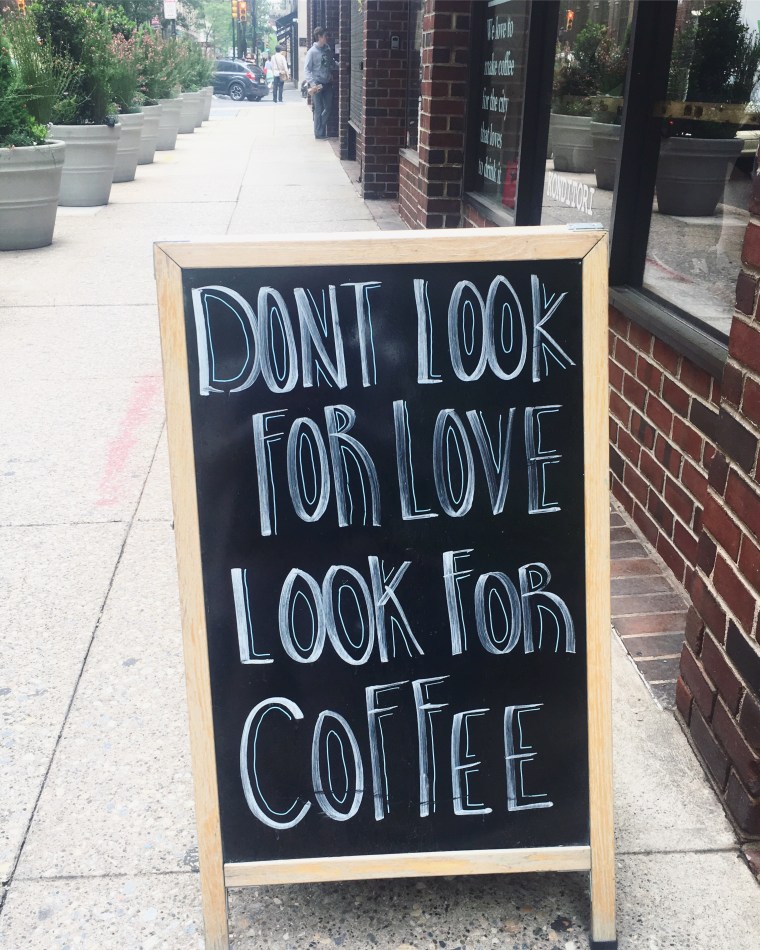 We love to
make coffee
for the city
that loves
to drink it
KONDITORI
DONT LOOK
FOR LOVE
LOOK FOR
COFFEE